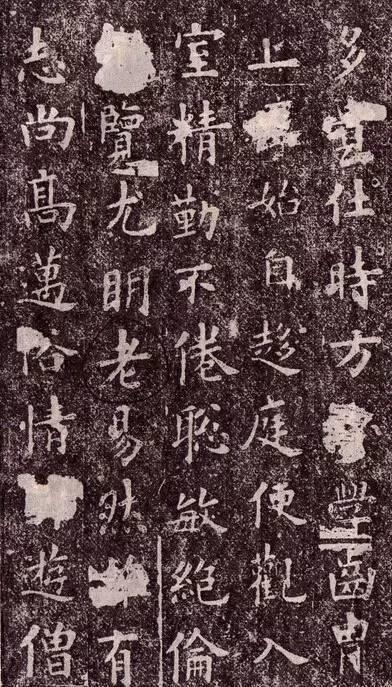 多仕時方學齒冑
上始自趍庭便觀入
室精勤不倦聡敏絶倫
覽尤明老易然有
志尚髙邁俗情遊僧